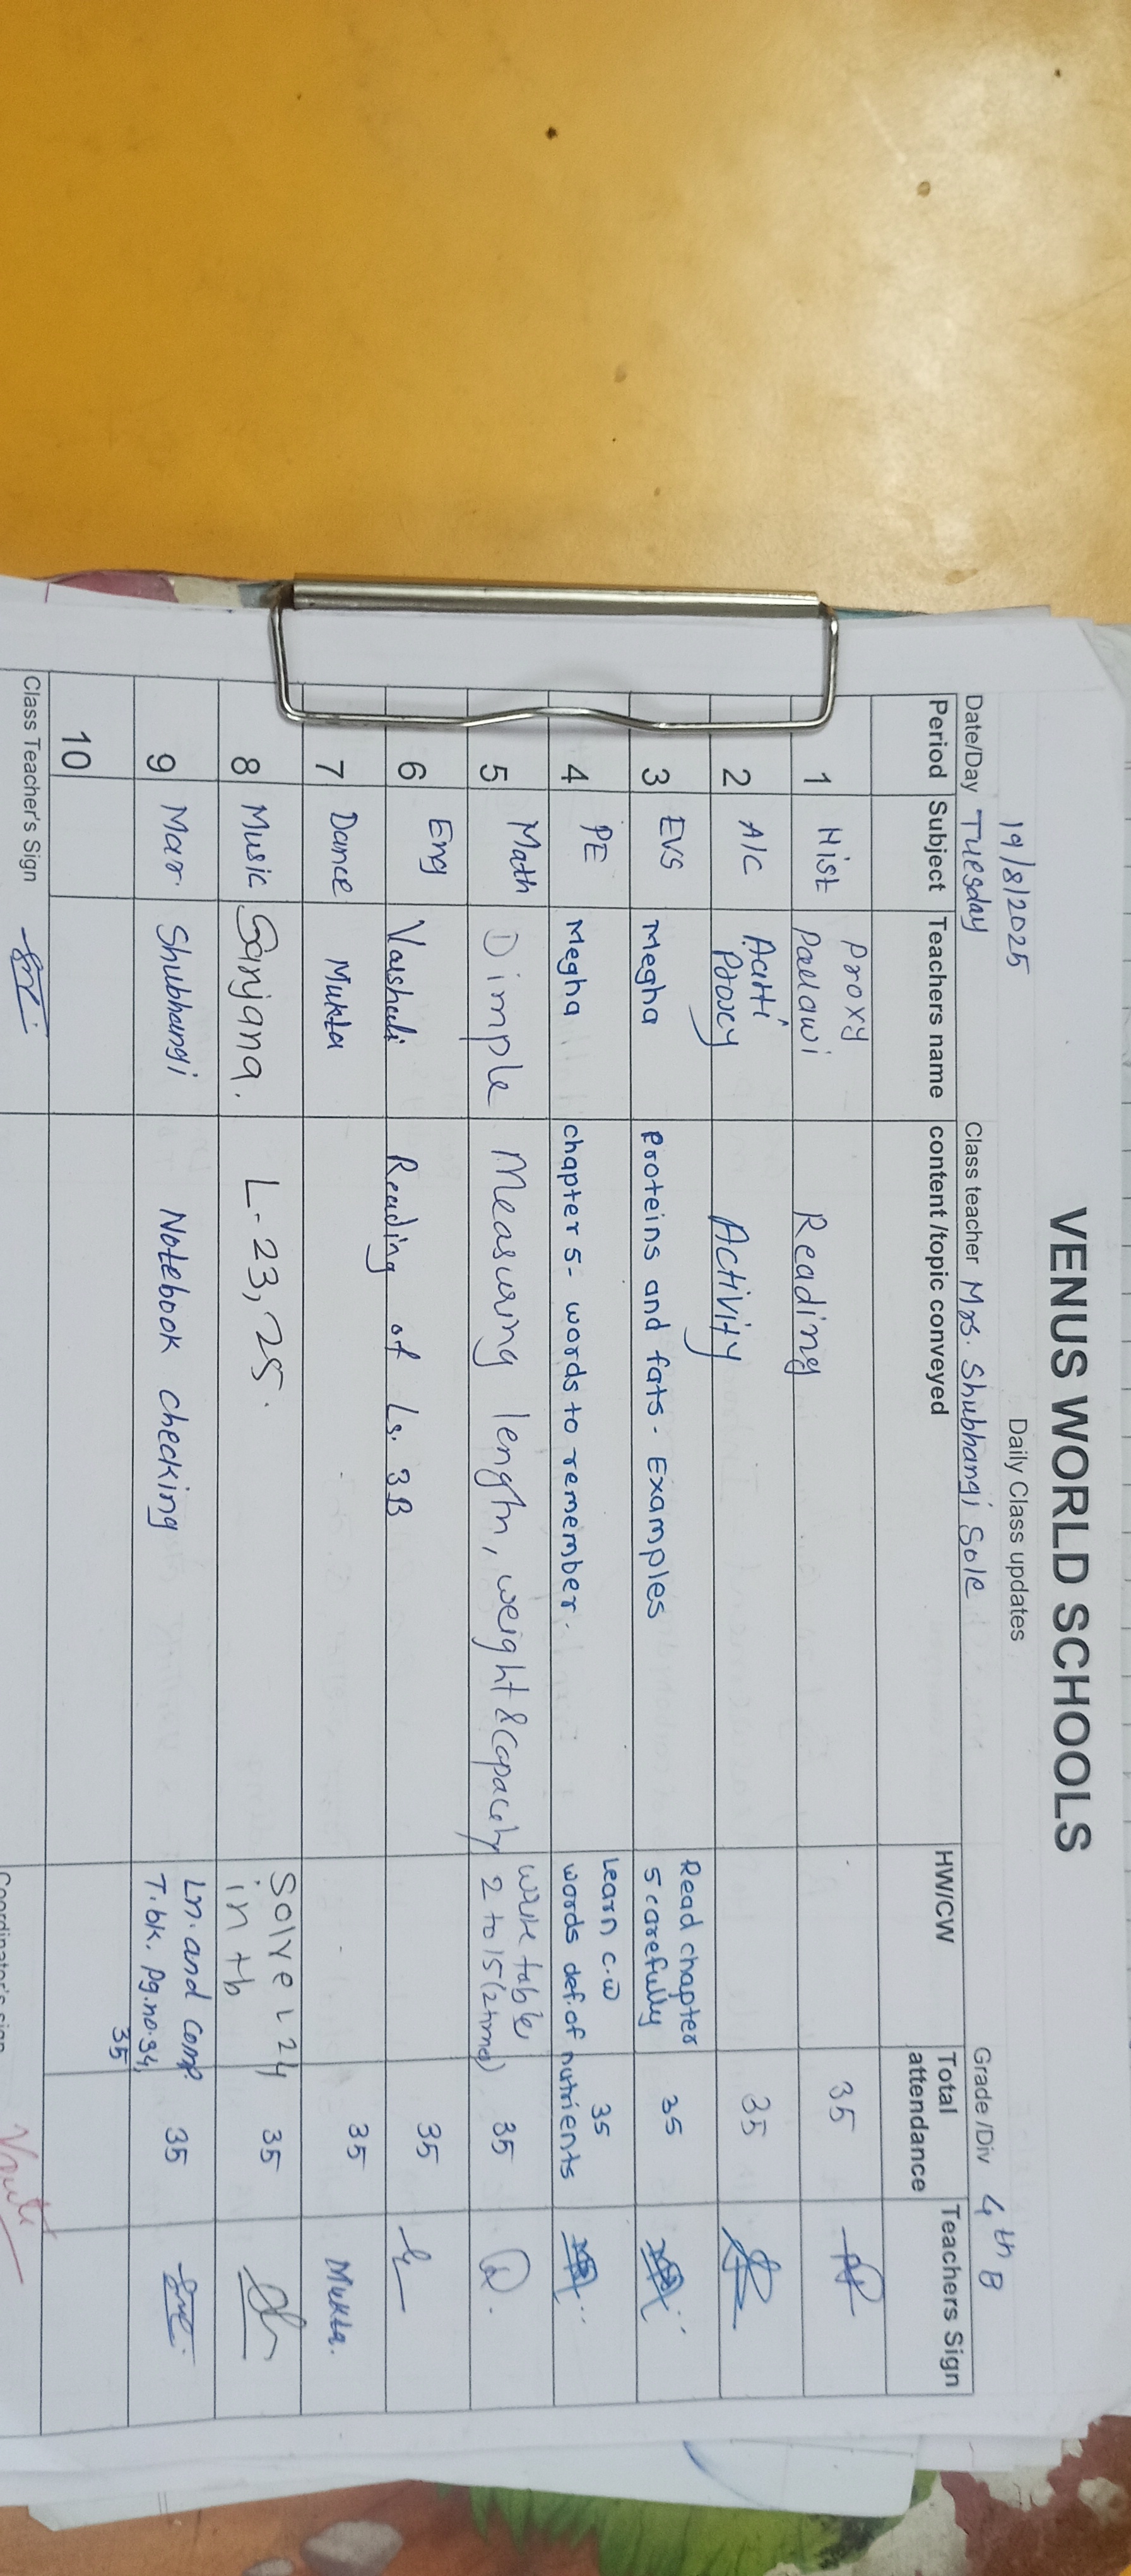 VENUS WORLD SCHOOLS
Daily Class updates
19/8/2025
Date/Day Tuesday Class teacher Mrs. Shubhangi Sole Grade /Div 4th B
Period Subject Teachers name content /topic conveyed HW/CW Total attendance Teachers Sign
Proxy
1 Hist Pallawi Reading 35
2 A/C Aarti Proxy Activity 35
3 EVS Megha Proteins and fats - Examples Read chapter 5 carefully 35
4 PE Megha chapter 5 - words to remember. Learn c.w words def. of nutrients 35
5 Math Dimple Measuring length, weight & capacity write table 2 to 15 (2 time) 35
6 Eng Vaishali Reading of Ls. 3B 35
7 Dance Mukta 35 Mukta.
8 Music Sanjana. L- 23, 25. Solve L 24 in tb 35
9 Mar. Shubhangi Notebook checking Ln. and comp. T. bk. pg. no. 34, 35 35
10
Class Teacher's Sign Coordinator's sign